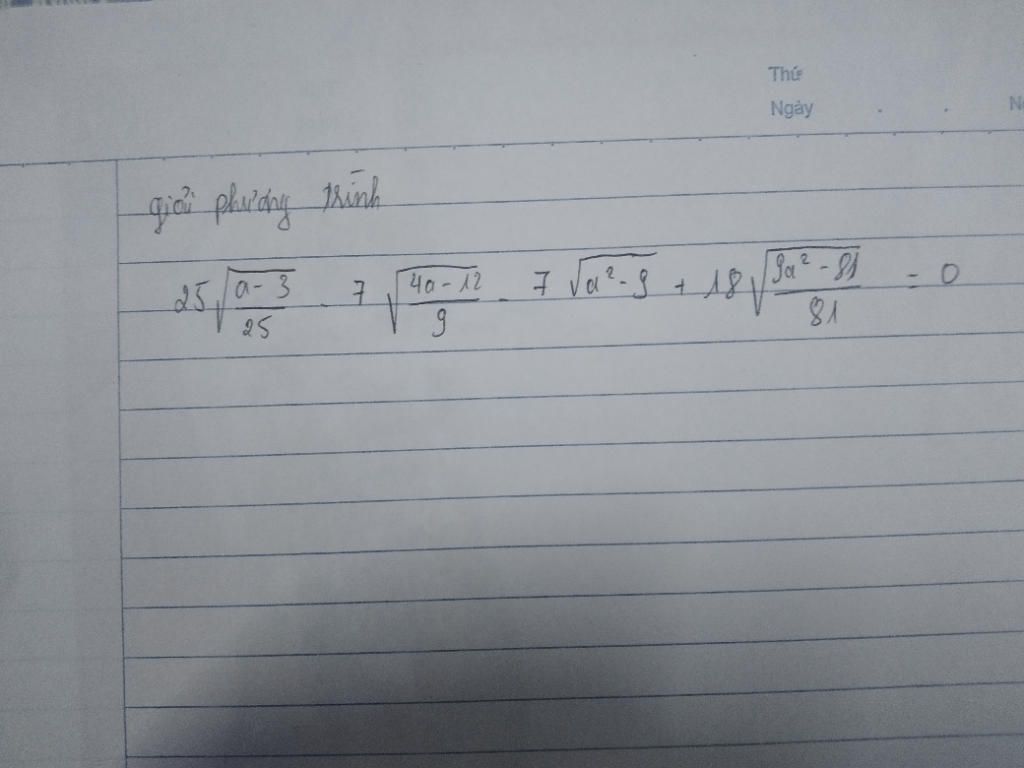 Thứ
Ngày . . N
giải phương trình
25√((a-3)/25) - 7√((4a-12)/9) - 7√(a²-9) + 18√((9a²-81)/81) = 0